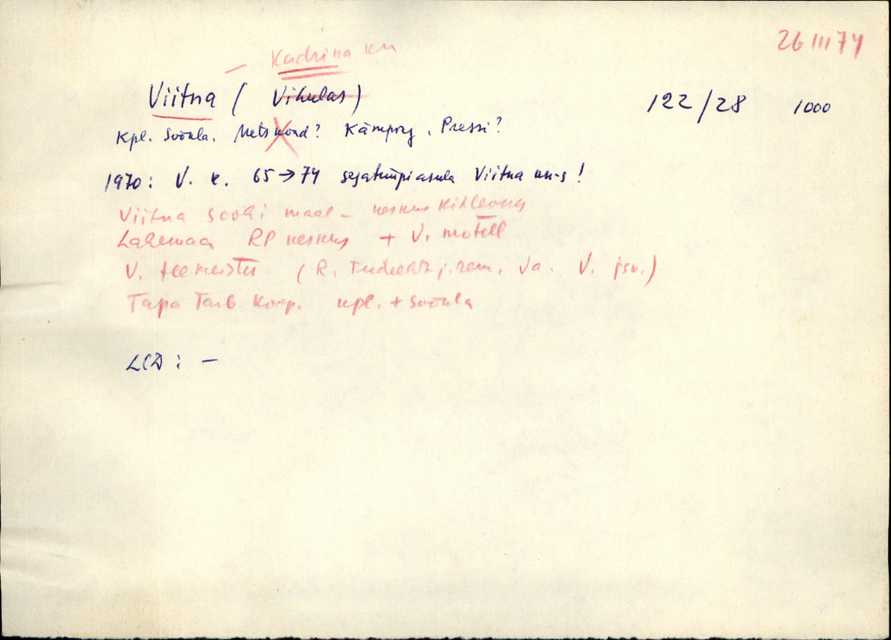 26 III 74
Kadrina kn
Viitna (Vihulas) 122/28 1000
Kpl. Söökla. Metskond? Kämping. Pressi?
1970: V. k. 65→74 segatüüpiasula Viitna kn-s!
Viitna sooki maal – keskus
Lahemaa RP keskus + V. motell
V. teemeister (R. j. rem. Ja. V. jsk.)
Tapa Tarb. Koop. kpl. + söökla
LCD: –